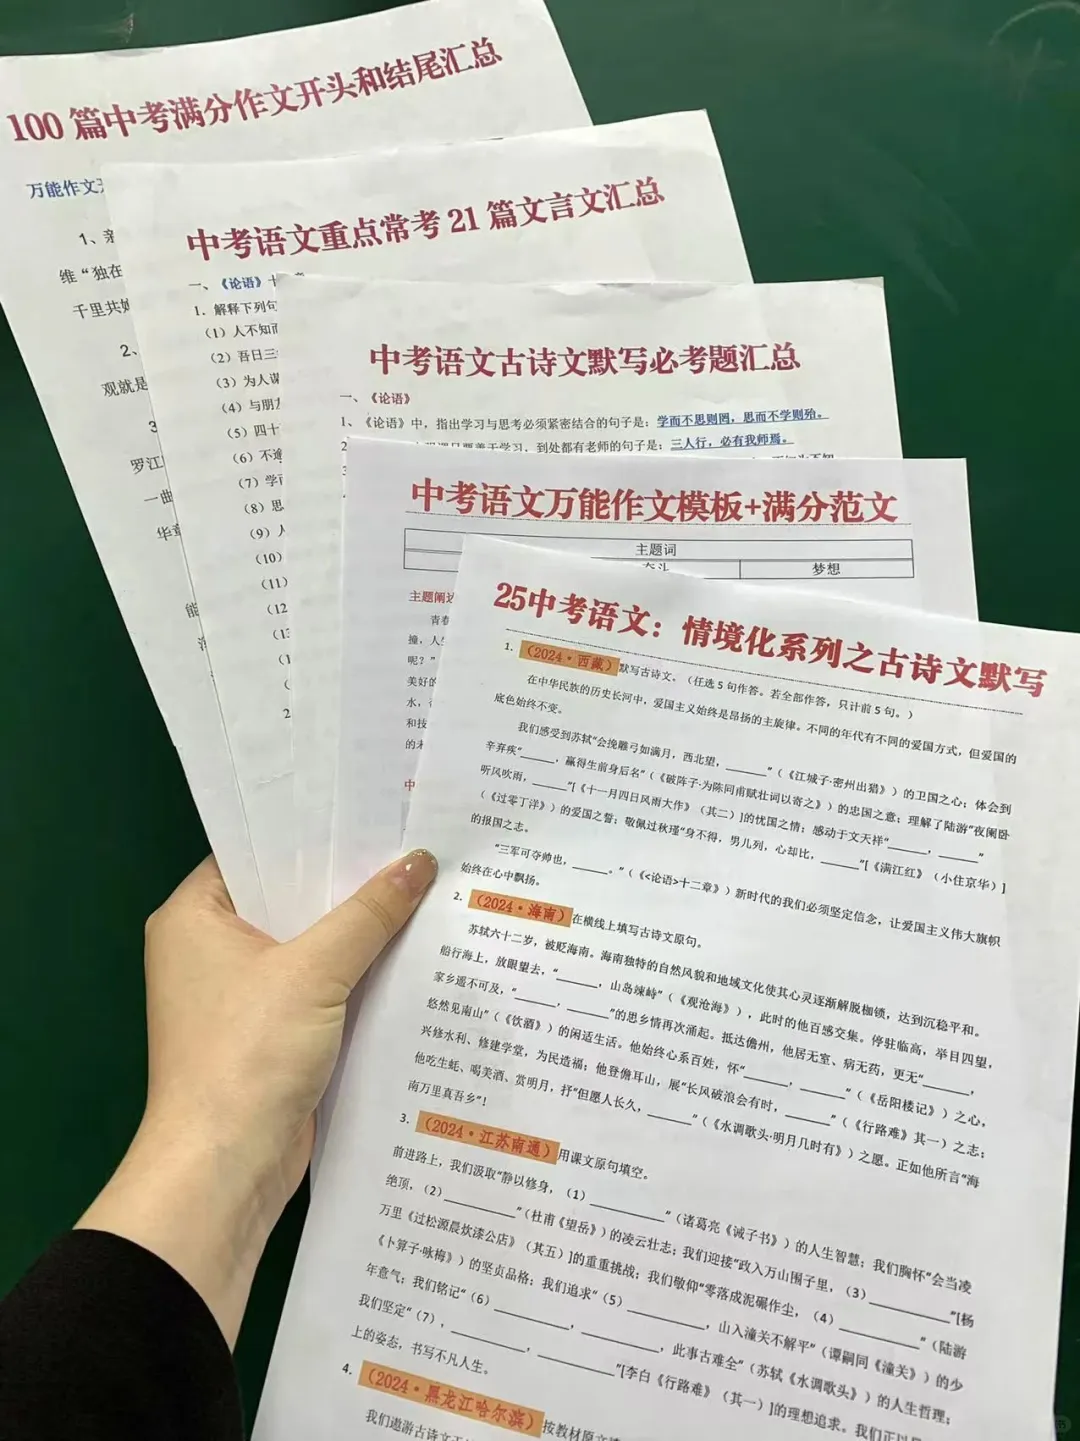 100 篇中考满分作文开头和结尾汇总
万能作文开
1、亲
维“独在
千里共婵
2、
观就是
3
罗江
一曲
华章
能
中考语文重点常考 21 篇文言文汇总
一、《论语》十
1. 解释下列句
（1）人不知而
（2）吾日三
（3）为人谋
（4）与朋友
（5）四十
（6）不逾
（7）学而
（8）思
（9）人
（10）
（11）
（12
（13
（1
（
2
中考语文古诗文默写必考题汇总
一、《论语》
1、《论语》中，指出学习与思考必须紧密结合的句子是：学而不思则罔，思而不学则殆。
2 学习，到处都有老师的句子是：三人行，必有我师焉。
中考语文万能作文模板+满分范文
主题词
奋斗 梦想
主题阐述
青春
撞，人生
呢？”
美好的
水，
和技
的未
中
25中考语文：情境化系列之古诗文默写
1. （2024·西藏）默写古诗文。（任选 5 句作答。若全部作答，只计前 5 句。）
在中华民族的历史长河中，爱国主义始终是昂扬的主旋律。不同的年代有不同的爱国方式，但爱国的
底色始终不变。
我们感受到苏轼“会挽雕弓如满月，西北望，______”（《江城子·密州出猎》）的卫国之心；体会到
辛弃疾“______，赢得生前身后名”（《破阵子·为陈同甫赋壮词以寄之》）的忠国之意；理解了陆游“夜阑卧
听风吹雨，______”[《十一月四日风雨大作》（其二）]的忧国之情；感动于文天祥“______，______”
（《过零丁洋》）的爱国之誓；敬佩过秋瑾“身不得，男儿列，心却比，______”[《满江红》（小住京华）]
的报国之志。
“三军可夺帅也，______。”（《<论语>十二章》）新时代的我们必须坚定信念，让爱国主义伟大旗帜
始终在心中飘扬。
2. （2024·海南）在横线上填写古诗文原句。
苏轼六十二岁，被贬海南。海南独特的自然风貌和地域文化使其心灵逐渐解脱枷锁，达到沉稳平和。
船行海上，放眼望去，“______，山岛竦峙”（《观沧海》），此时的他百感交集。停驻临高，举目四望，
家乡遥不可及，“______，______”的思乡情再次涌起。抵达儋州，他居无室、病无药，更无“______，
悠然见南山”（《饮酒》）的闲适生活。他始终心系百姓，怀“______，______”（《岳阳楼记》）之心，
兴修水利、修建学堂，为民造福；他登儋耳山，展“长风破浪会有时，______”（《行路难》其一）之志；
他吃生蚝、喝美酒、赏明月，抒“但愿人长久，______”（《水调歌头·明月几时有》）之愿。正如他所言“海
南万里真吾乡”！
3. （2024·江苏南通）用课文原句填空。
前进路上，我们汲取“静以修身，（1）__________”（诸葛亮《诫子书》）的人生智慧；我们胸怀“会当凌
绝顶，（2）__________”（杜甫《望岳》）的凌云壮志；我们迎接“政入万山围子里，（3）__________”[杨
万里《过松源晨炊漆公店》（其五）]的重重挑战；我们敬仰“零落成泥碾作尘，（4）__________”（陆游
《卜算子·咏梅》）的坚贞品格；我们追求“（5）__________，山入潼关不解平”（谭嗣同《潼关》）的少
年意气；我们铭记“（6）__________，__________，此事古难全”（苏轼《水调歌头》）的人生哲理；
我们坚定“（7），__________，__________”[李白《行路难》（其一）]的理想追求。我们正以
上的姿态，书写不凡人生。
4. （2024·黑龙江哈尔滨）按教材原文
我们遨游古诗文